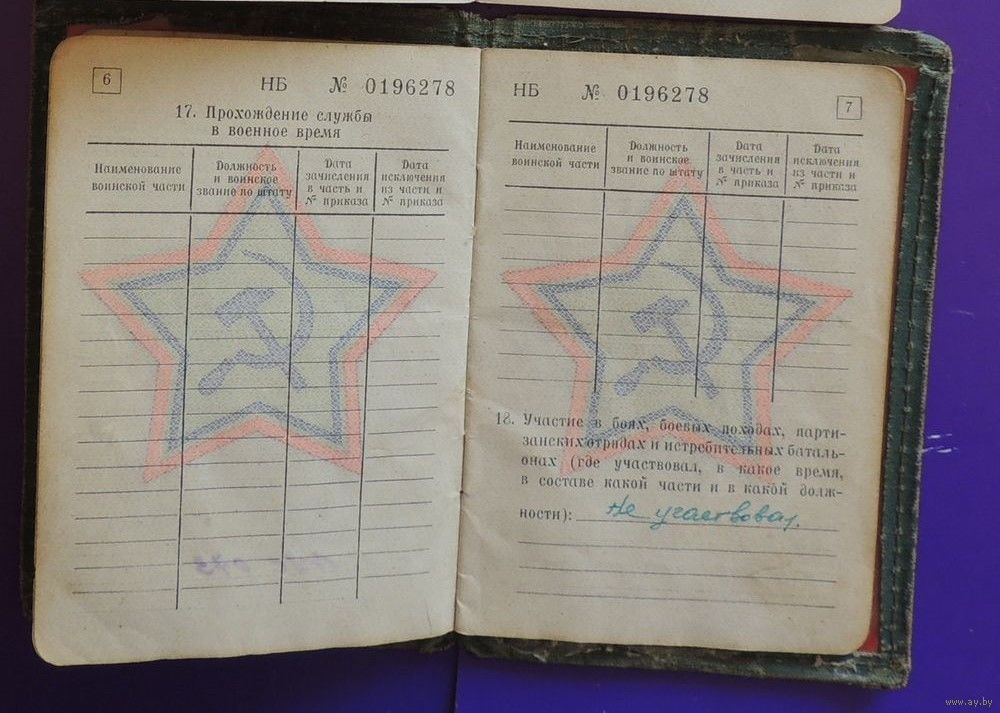 6
НБ № 0196278
17. Прохождение службы
в военное время
Наименование
воинской части
Должность
и воинское
звание по штату
Дата
зачисления
в часть и
№ приказа
Дата
исключения
из части и
№ приказа
НБ № 0196278
7
Наименование
воинской части
Должность
и воинское
звание по штату
Дата
зачисления
в часть и
№ приказа
Дата
исключения
из части и
№ приказа
18. Участие в боях, боевых походах, парти-
занских отрядах и истребительных баталь-
онах (где участвовал, в какое время,
в составе какой части и в какой долж-
ности): Не участвовал.
www.ay.by